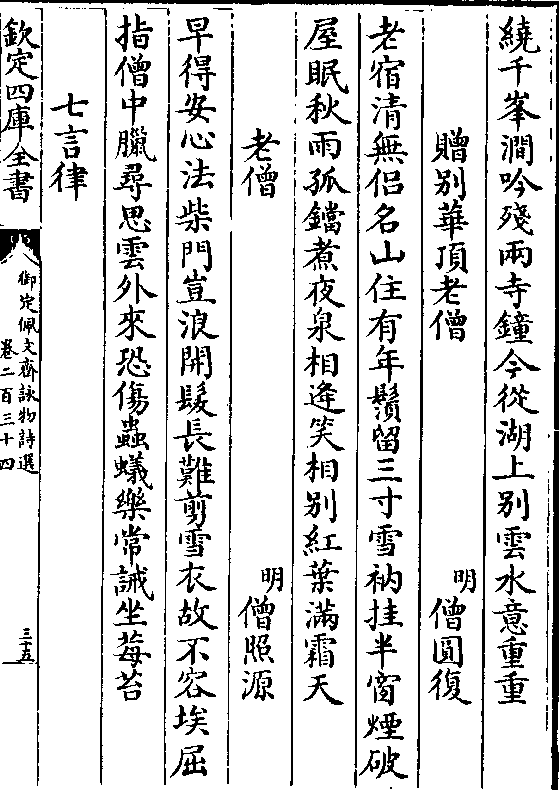 繞千峯澗吟殘兩寺鐘今從湖上別雲水意重重
贈別華頂老僧 明 僧圓復
老宿清無侣名山住有年鬚留三寸雪衲挂半窗煙破
屋眠秋雨孤鐺煮夜泉相逢笑相別紅葉滿霜天
老僧 明 僧照源
早得安心法柴門豈浪開髮長難剪雪衣故不容埃屈
指僧中臘尋思雲外來恐傷蟲蟻樂常誡坐莓苔
七言律
欽定四庫全書
御定佩文齋詠物詩選
卷二百三十四
三十五